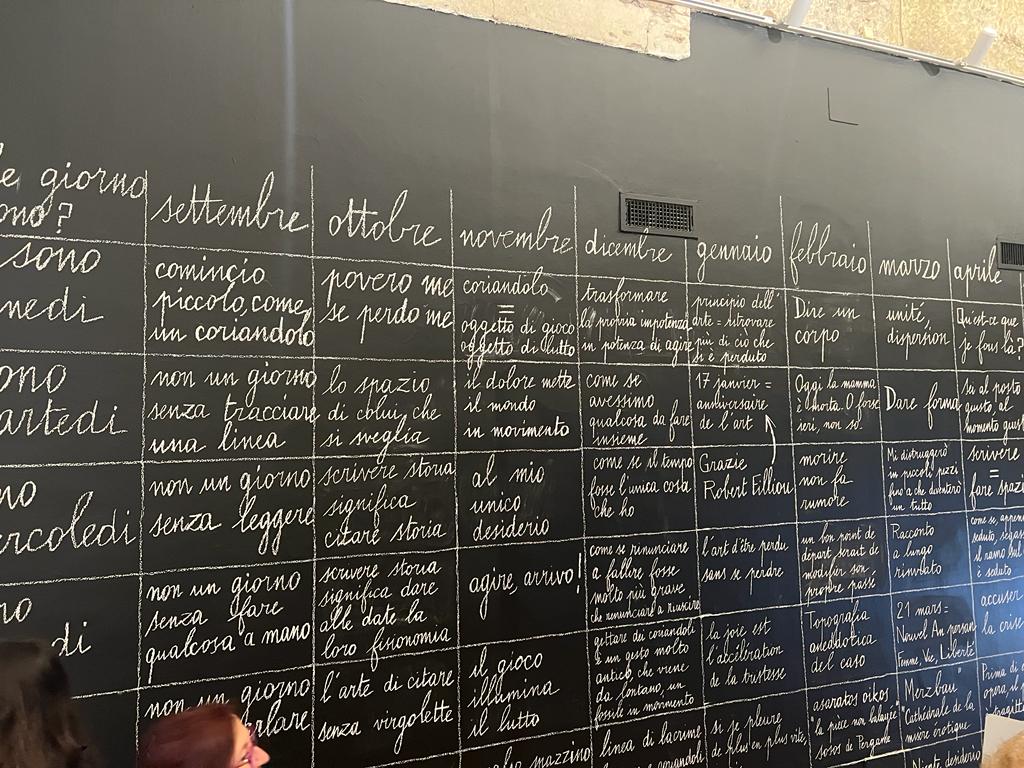 e giorno
ono?
settembre
ottobre
novembre
dicembre
gennaio
febbraio
marzo
aprile
sono
nedi
comincio
piccolo, come
un coriandolo
povero me
se perdo me
coriandolo
=
oggetto di gioco
oggetto di lutto
trasformare
la propria impotenza
in potenza di agire
principio dell'
arte = ritrovare
più di ciò che
si è perduto
Dire un
corpo
unité,
dispersion
Qu'est-ce que
je fous là?
ono
artedi
non un giorno
senza tracciare
una linea
lo spazio
di colui che
si sveglia
il dolore mette
il mondo
in movimento
come se
avessimo
qualcosa da fare
insieme
17 janvier =
anniversaire
de l'art
Oggi la mamma
è morta. O forse
ieri, non so.
Dare forma
sei al posto
giusto, al
momento giust
no
ercoledi
non un giorno
senza leggere
scrivere storia
significa
citare storia
al mio
unico
desiderio
come se il tempo
fosse l'unica cosa
che ho
Grazie
Robert Filliou
morire
non fa
rumore
Mi distruggerò
in piccoli pezzi
fino a che diventerò
un tutto
scrivere
=
fare spazi
no
di
non un giorno
senza fare
qualcosa a mano
scrivere storia
significa dare
alle date la
loro fisionomia
agire, arrivo!
come se rinunciare
a fallire fosse
molto più grave
che rinunciare a riuscire
l'art d'être perdu
sans se perdre
un bon point de
départ serait de
modifier son
propre passé
Racconto
a lungo
rinviato
come se, appren
seduto, segass
il ramo sul
è seduto
non un giorno
l'arte di citare
senza virgolette
il gioco
illumina
il lutto
gettare dei coriandoli
è un gesto molto
antico, che viene
da lontano, un
fossile in movimento
la joie est
l'accélération
de la tristesse
Topografia
aneddotica
del caso
21 mars =
Nouvel An persan
Femme, Vie, Liberté
accuser
la crise
mazzino
linea di lacrime
coriandoli
si je pleure
de plus en plus vite,
asaratos oikos
"la pièce non balayée"
sosos de Pergame
"Merzbau"
"Cathédrale de la
misère érotique"
Niente desiderio
Prima di
opera, il